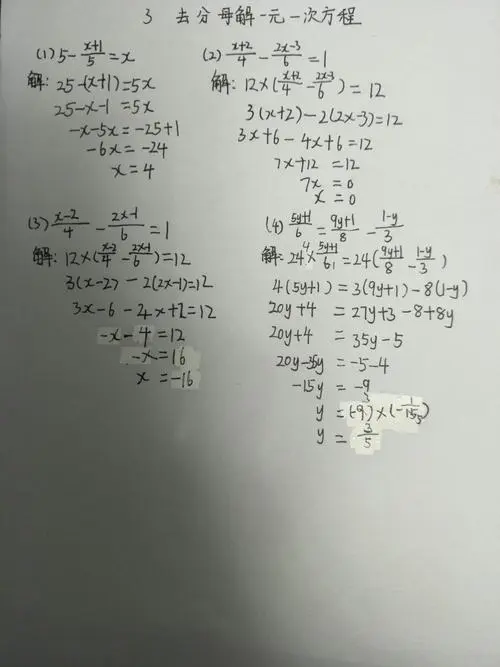 3 去分母解一元一次方程
(1) 5 - \frac{x+1}{5} = x
解: 25-(x+1)=5x
25-x-1=5x
-x-5x=-25+1
-6x=-24
x=4
(2) \frac{x+2}{4} - \frac{2x-3}{6} = 1
解: 12×(\frac{x+2}{4} - \frac{2x-3}{6}) = 12
3(x+2)-2(2x-3)=12
3x+6-4x+6=12
7x+12=12
7x=0
x=0
(3) \frac{x-2}{4} - \frac{2x-1}{6} = 1
解: 12×(\frac{x-2}{4} - \frac{2x-1}{6})=12
3(x-2)-2(2x-1)=12
3x-6-4x+2=12
-x-4=12
-x=16
x=-16
(4) \frac{5y+1}{6} = \frac{9y+1}{8} - \frac{1-y}{3}
解: 24^4×\frac{5y+1}{6_1}=24(\frac{9y+1}{8} - \frac{1-y}{3})
4(5y+1)=3(9y+1)-8(1-y)
20y+4=27y+3-8+8y
20y+4=35y-5
20y-35y=-5-4
-15y=-9
y=(-9^3)×(-\frac{1}{15_5})
y=\frac{3}{5}